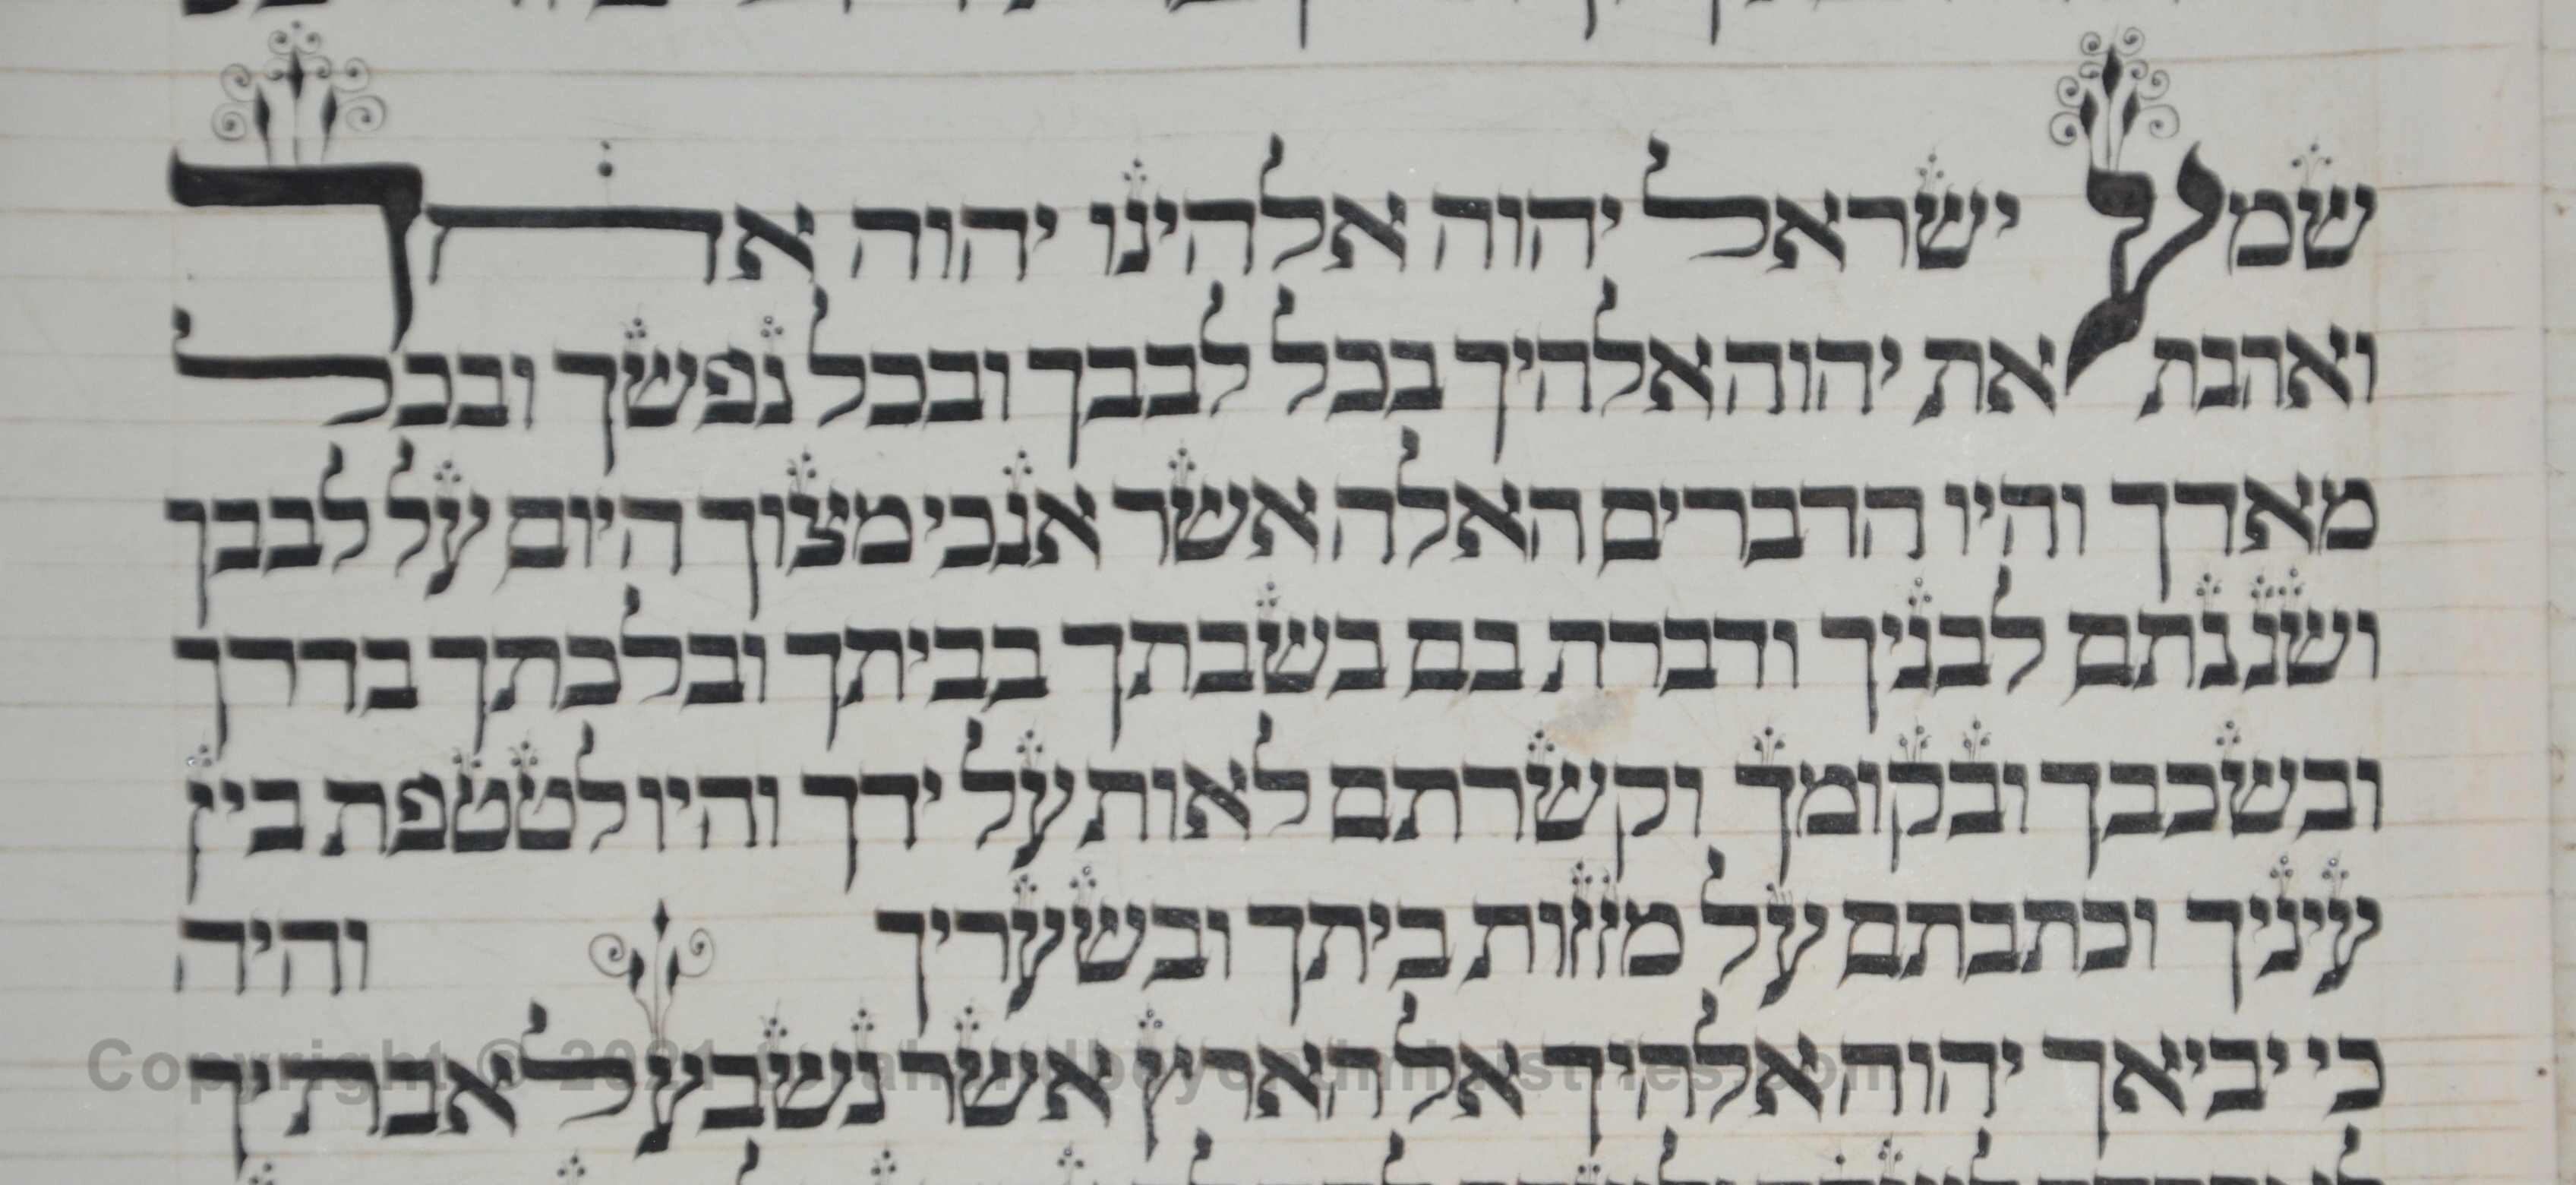 שמע ישראל יהוה אלהינו יהוה אחד
ואהבת את יהוה אלהיך בכל לבבך ובכל נפשך ובכל
מאדך והיו הדברים האלה אשר אנכי מצוך היום על לבבך
ושננתם לבניך ודברת בם בשבתך בביתך ובלכתך בדרך
ובשכבך ובקומך וקשרתם לאות על ידך והיו לטטפת בין
עיניך וכתבתם על מזוזות ביתך ובשעריך והיה
כי יביאך יהוה אלהיך אל הארץ אשר נשבע לאבתיך
Copyright © 2021